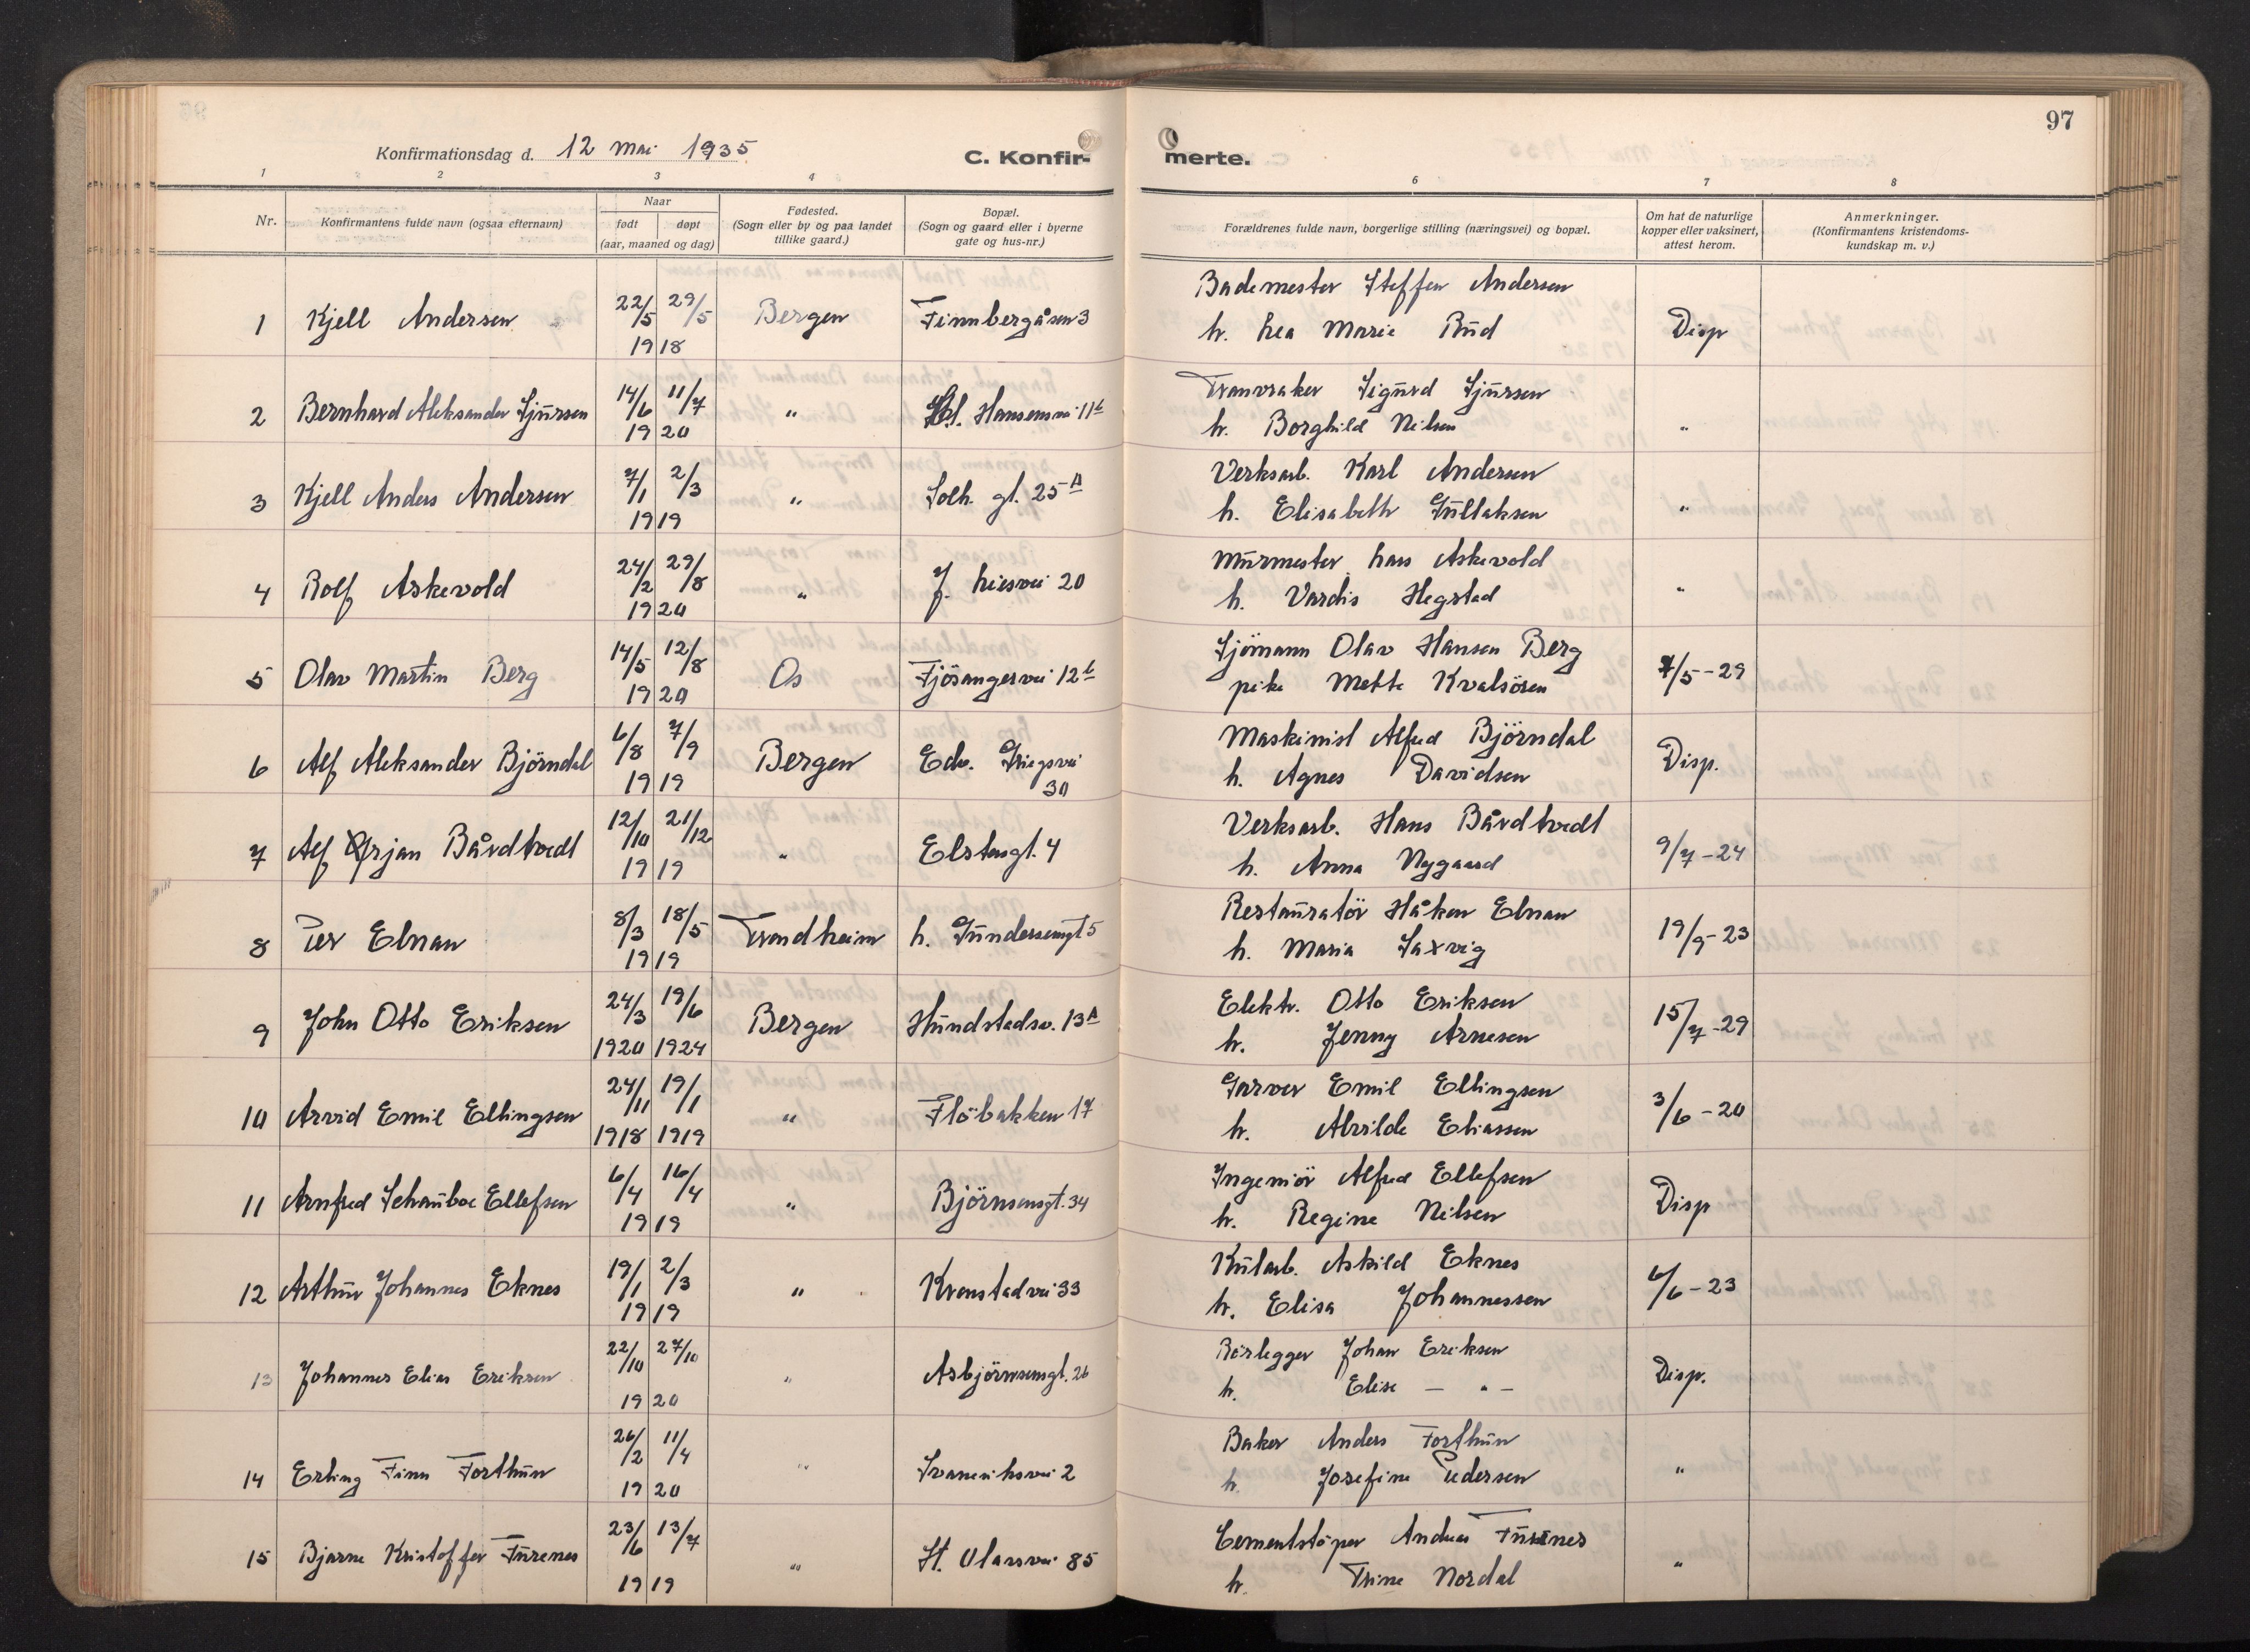 97
Konfirmationsdag d. 12 mai 1935.
C. Konfir-
merte.
1 2 3 4 6 7 8
Nr.
Konfirmantens fulde navn (ogsaa efternavn)
Naar
født døpt
(aar, maaned og dag)
Fødested.
(Sogn eller by og paa landet
tillike gaard.)
Bopæl.
(Sogn og gaard eller i byerne
gate og hus-nr.)
Forældrenes fulde navn, borgerlige stilling (næringsvei) og bopæl.
Om hat de naturlige
kopper eller vaksinert,
attest herom.
Anmerkninger.
(Konfirmantens kristendoms-
kundskap m. v.)
1 Kjell Andersen 22/5 29/5 Bergen Finnbergåsen 3
1918
Bademester Steffen Andersen
h. Lea Marie Rud Disp
2 Bernhard Aleksander Sjursen 14/6 11/7 " Hansensvei 11b
1920
Tranvraker Sigurd Sjursen
h. Borghild Nilsen "
3 Kjell Anders Andersen 7/1 2/3 " Solh. gt. 25A
1919
Verksarb. Karl Andersen
h. Elisabeth Gullaksen "
4 Rolf Askevold 24/2 29/8 " J. Liesvei 20
1920
Murmester Lars Askevold
h. Vardis Hegstad "
5 Olav Martin Berg 14/5 12/8 Os Fjösangervei 12b
1920
Sjömann Olav Hansen Berg
pike Mette Kvalsören 7/5-29
6 Alf Aleksander Björndal 6/8 7/9 Bergen Edv. Griegsvei
1919 30
Maskinist Alfred Björndal
h. Agnes Davidsen Disp.
7 Alf Ørjan Båvdtvedt 12/10 21/12 " Elstersgt. 4
1919
Verksarb. Hans Båvdtvedt
h. Anna Nygaard 9/7-24
8 Per Elnan 8/3 18/5 Trondheim h. Gundersensgt 5
1919
Restauratör Håkon Elnan
h. Maria Saxvig 19/9-23
9 John Otto Eriksen 24/3 19/6 Bergen Hunstadsv. 13A
1920 1924
Elektr. Otto Eriksen
h. Jenny Arnesen 15/7-29
10 Arvid Emil Ellingsen 24/11 19/1 " Flöbakken 17
1918 1919
Garver Emil Ellingsen
h. Alvilde Eliassen 3/6-20
11 Arnfred Schaubøe Ellefsen 6/4 16/4 " Björnsonsgt. 34
1919
Ingeniör Alfred Ellefsen
h. Regine Nilsen Disp
12 Arthur Johannes Eknes 19/1 2/3 " Kronstadvei 33
1919
Kularb. Askild Eknes
h. Elisa Johannessen 6/6-23
13 Johannes Elias Eriksen 22/10 27/10 " Asbjörnsensgt. 26
1920
Rörlegger Johan Eriksen
h. Elise — " — Disp.
14 Erling Finn Forthun 26/2 11/4 " Svaneviksvei 2
1920
Baker Anders Forthun
h. Josefine Pedersen "
15 Bjarne Kristoffer Furenes 23/6 13/7 " St. Olavsvei 85
1919
Cementstöper Andreas Furenes
h. Trine Nordal "